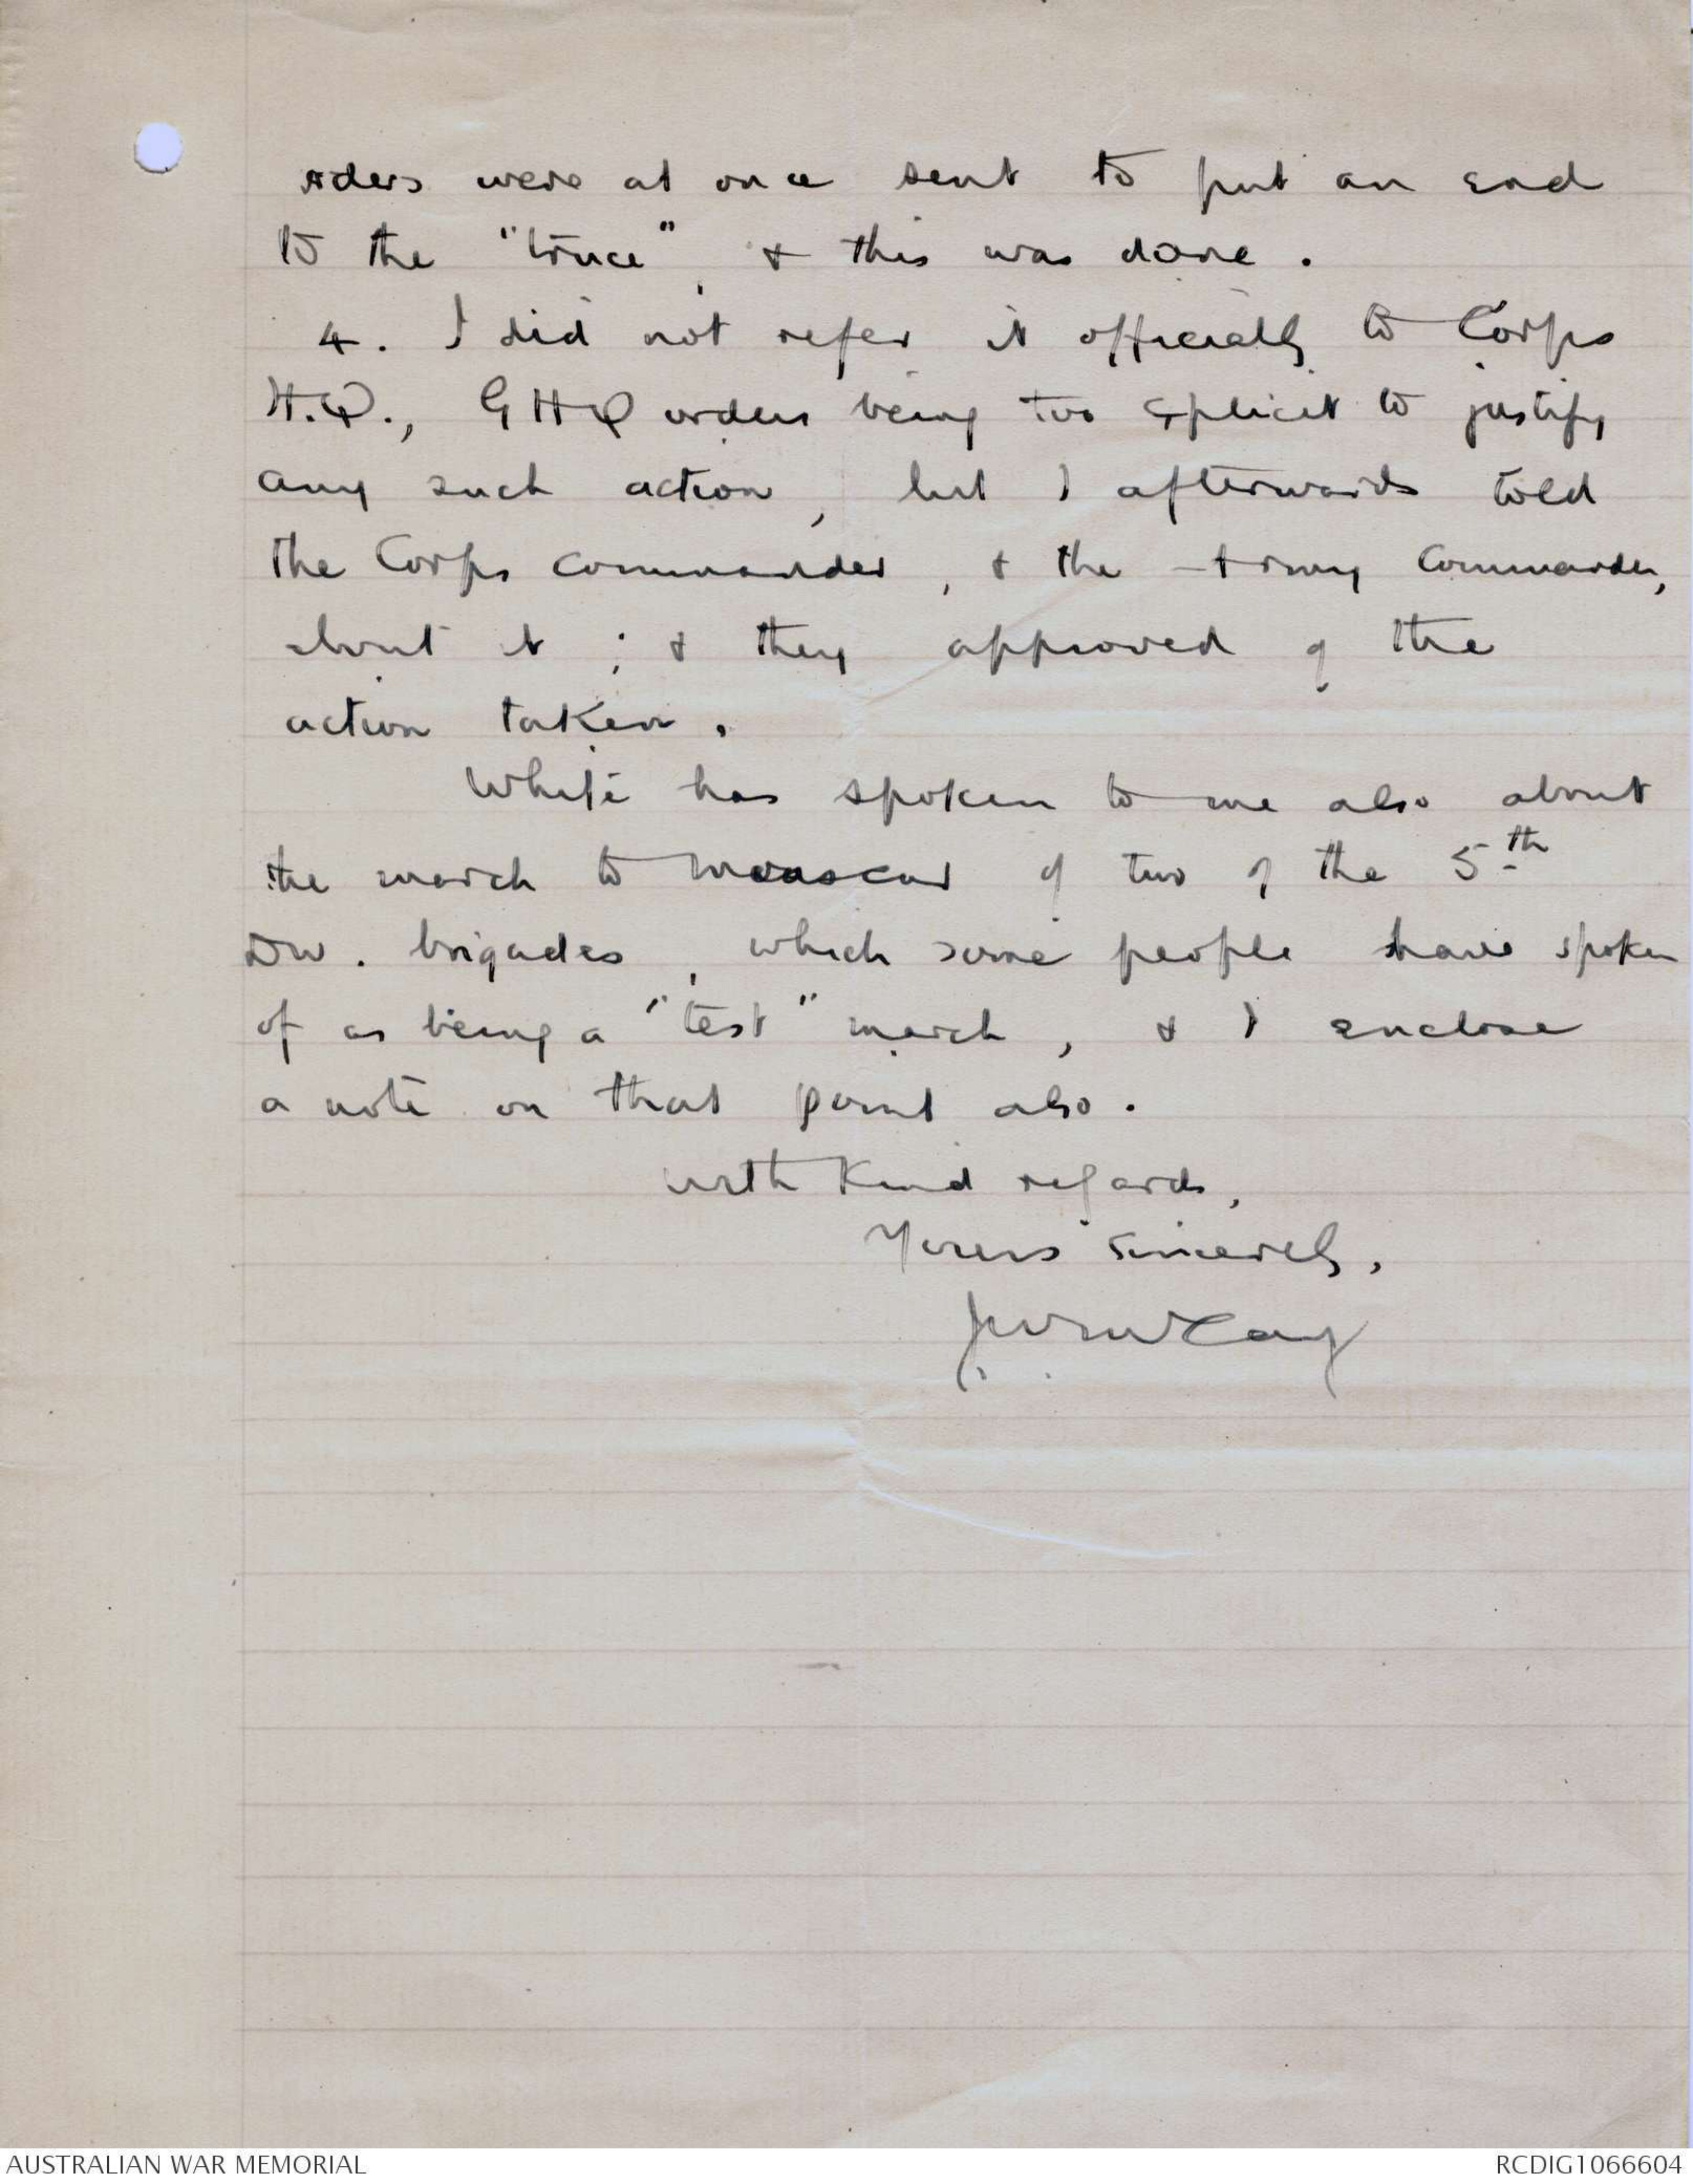 orders were at once sent to put an end
to the "truce", & this was done.
4. I did not refer it officially to Corps
H.Q., GHQ orders being too explicit to justify
any such action, but I afterwards told
the Corps Commander, & the Army Commander,
about it; & they approved of the
action taken.
White has spoken to me also about
the march to Moascar of two of the 5th
Div. brigades, which some people have spoken
of as being a "test" march, & I enclose
a note on that point also.
With kind regards,
Yours sincerely,
J W McCay
AUSTRALIAN WAR MEMORIAL
RCDIG1066604